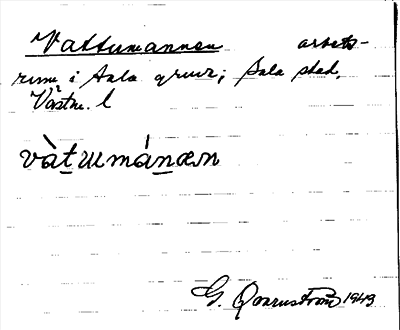 Vattumannen arbets-
rum i Sala gruva; Sala stad,
Västm. l
vàt̲umánæn
G. Qvarnström 1949